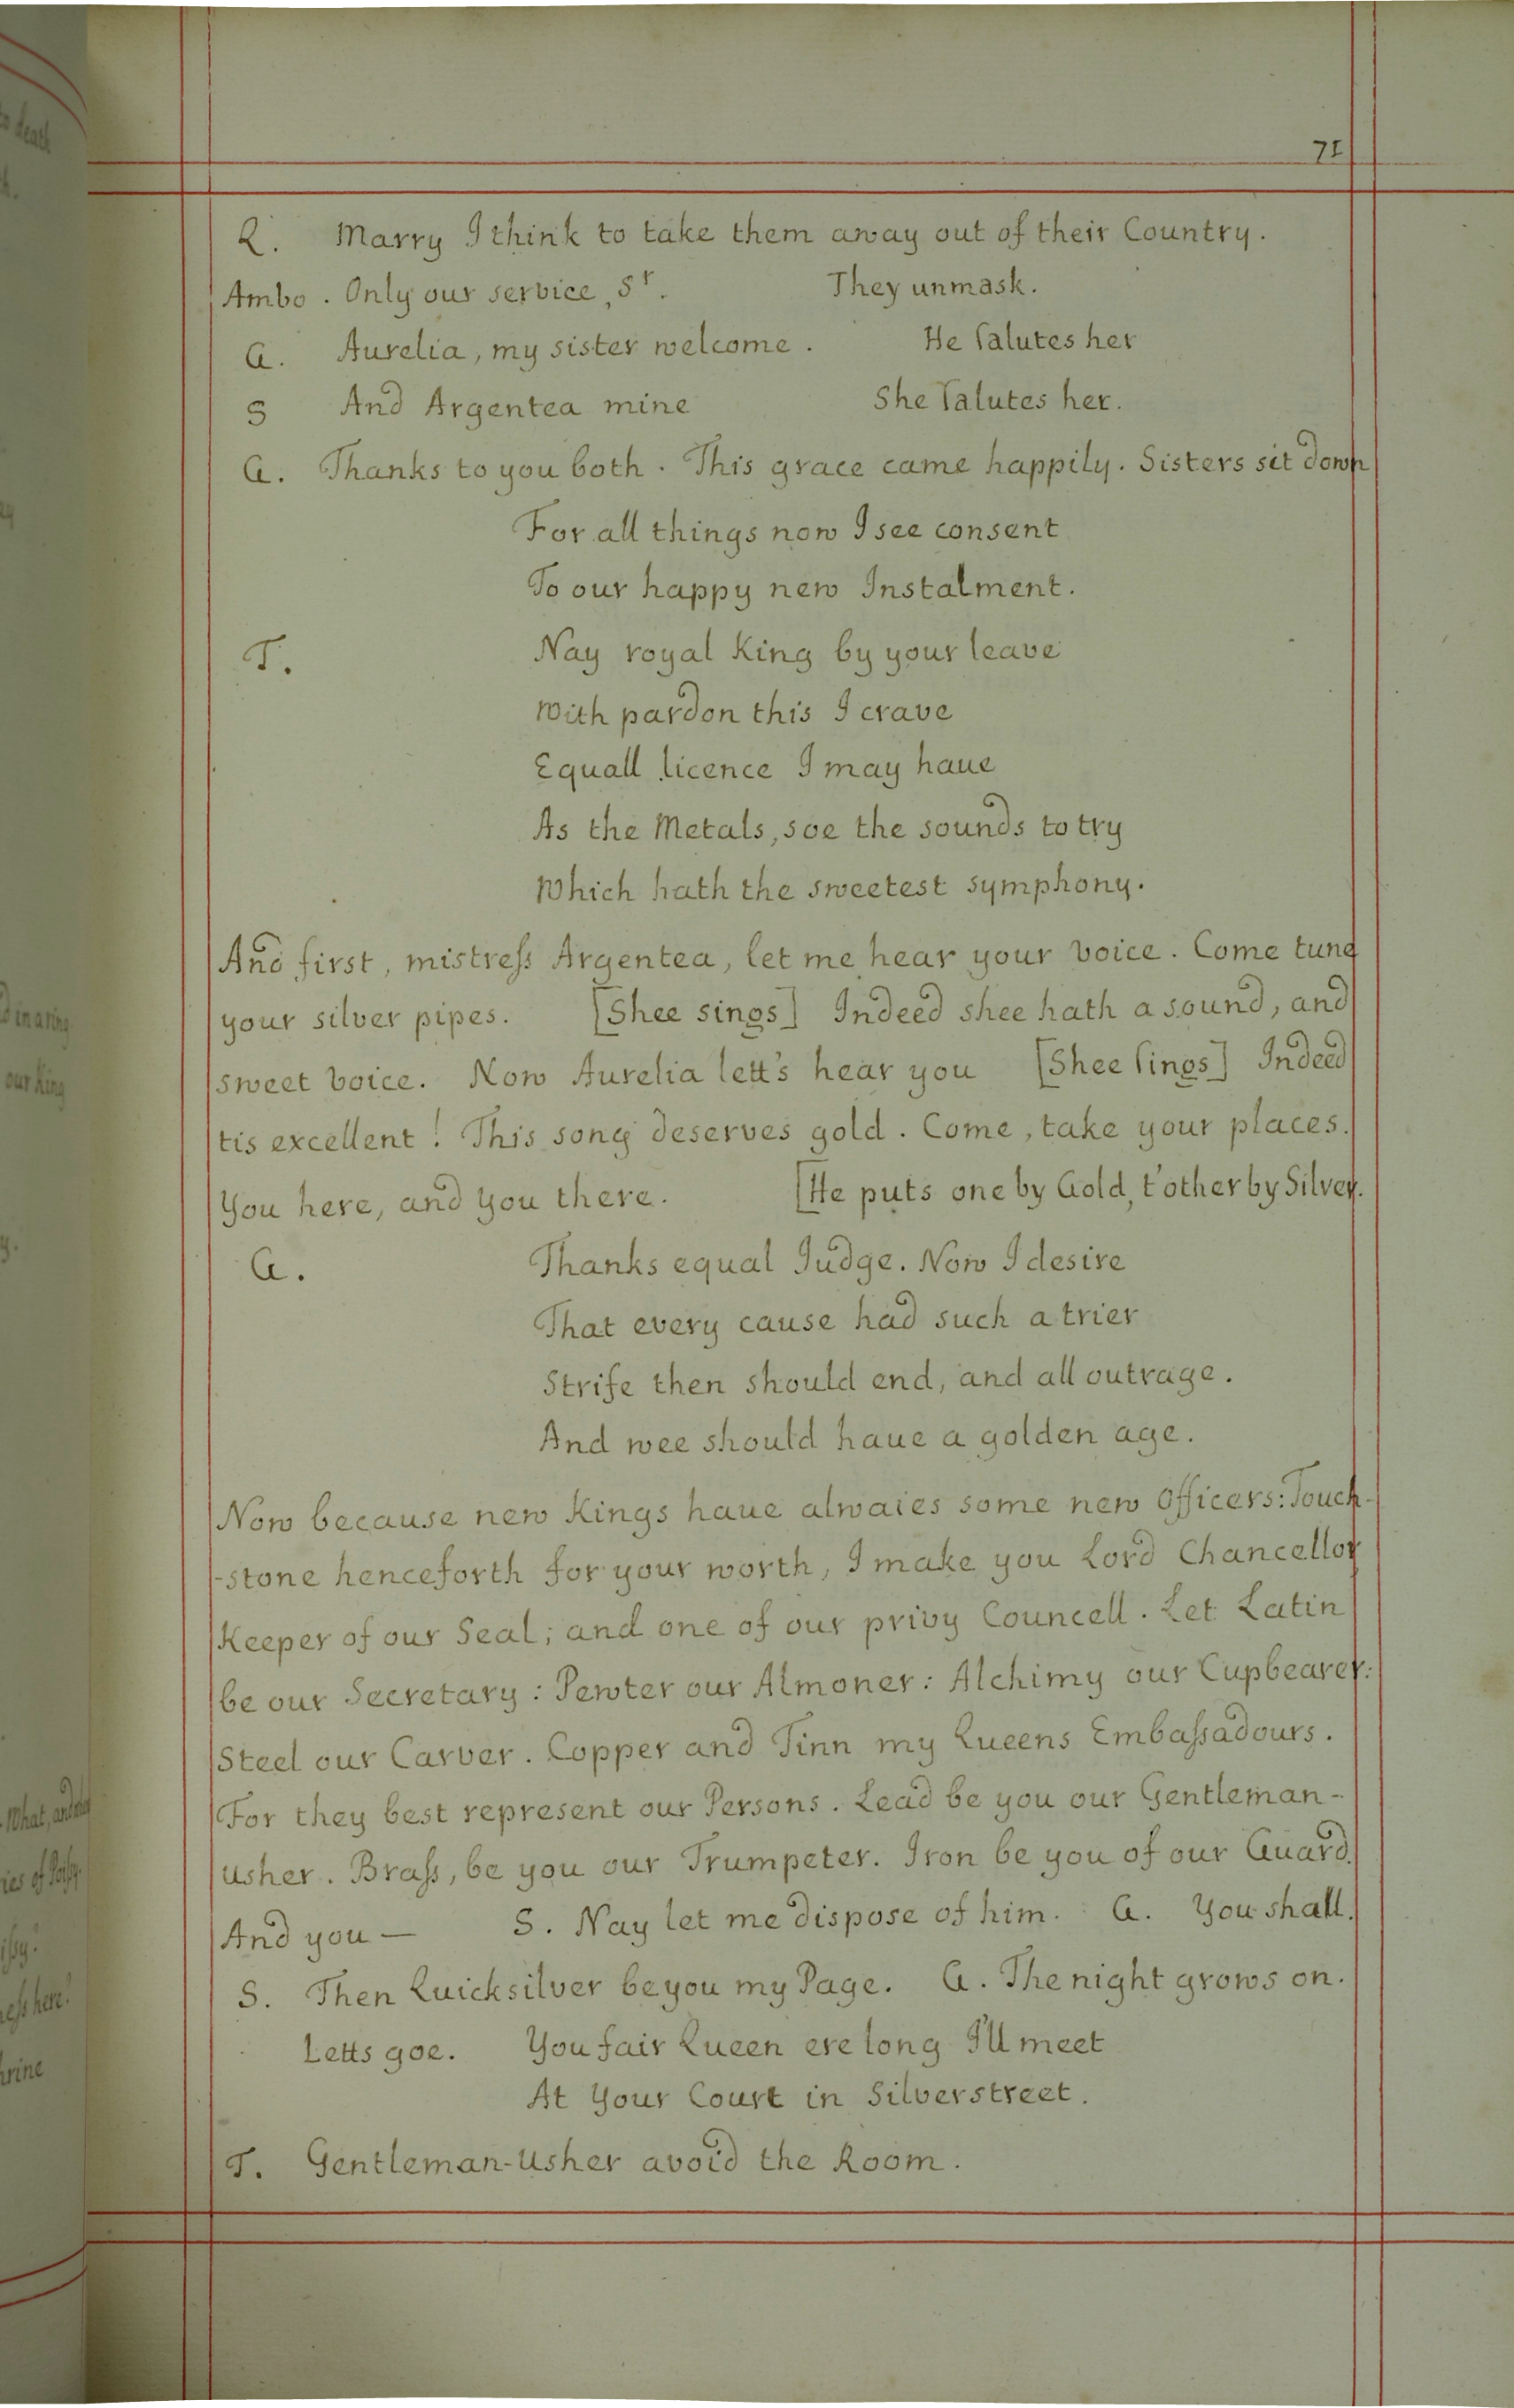 71
Q. Marry I think to take them away out of their Country.
Ambo. Only our service, Sr. They unmask.
G. Aurelia, my sister welcome. He Salutes her
S And Argentea mine She Salutes her.
G. Thanks to you both. This grace came happily. Sisters sit down
For all things now I see consent
To our happy new Instalment.
T. Nay royal King by your leave
With pardon this I crave
Equall licence I may haue
As the Metals, soe the sounds to try
Which hath the sweetest symphony.
And first, mistress Argentea, let me hear your voice. Come tune
your silver pipes. [Shee sings] Indeed shee hath a sound, and
sweet voice. Now Aurelia lett's hear you [Shee sings] Indeed
tis excellent! This song deserves gold. Come, take your places.
You here, and you there. [He puts one by Gold, t'other by Silver.
G. Thanks equal Judge. Now I desire
That every cause had such a trier
Strife then should end, and all outrage.
And wee should haue a golden age.
Now because new Kings haue alwaies some new Officers: Touch-
-stone henceforth for your worth, I make you Lord Chancellor
Keeper of our Seal; and one of our privy Councell. Let Latin
be our Secretary: Pewter our Almoner: Alchimy our Cupbearer:
Steel our Carver. Copper and Tinn my Queens Embassadours.
For they best represent our Persons. Lead be you our Gentleman-
Usher. Brass, be you our Trumpeter. Iron be you of our Guard.
And you — S. Nay let me dispose of him. G. You shall.
S. Then Quicksilver be you my Page. G. The night grows on.
Letts goe. You fair Queen ere long I'll meet
At Your Court in Silverstreet.
T. Gentleman-Usher avoid the Room.